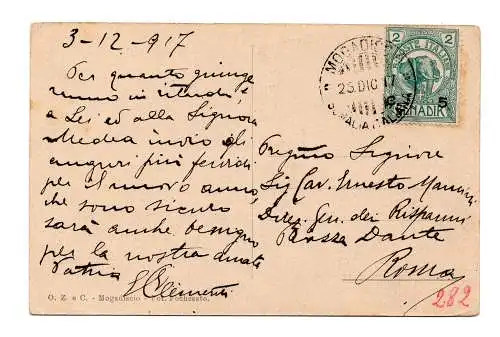 3-12-917
Per quanto giunge
ranno in ritardo, è
a Lei ed alla Signora
Medea invio gli
auguri più fervidi
per il nuovo anno,
che sono sicuro
sarà anche benigno
per la nostra amata
Patria
Clementi
O. Z. e C. - Mogadiscio - Fot.
MOGADISC
23 DIC 17
SOMALIA ITALIANA
2 2
POSTE ITALIANE
C. 5
BENADIR
Pregmo Signore
Sig Cav. Ernesto
Direz. Gen. dei Risparmi
Piazza Dante
Roma
282